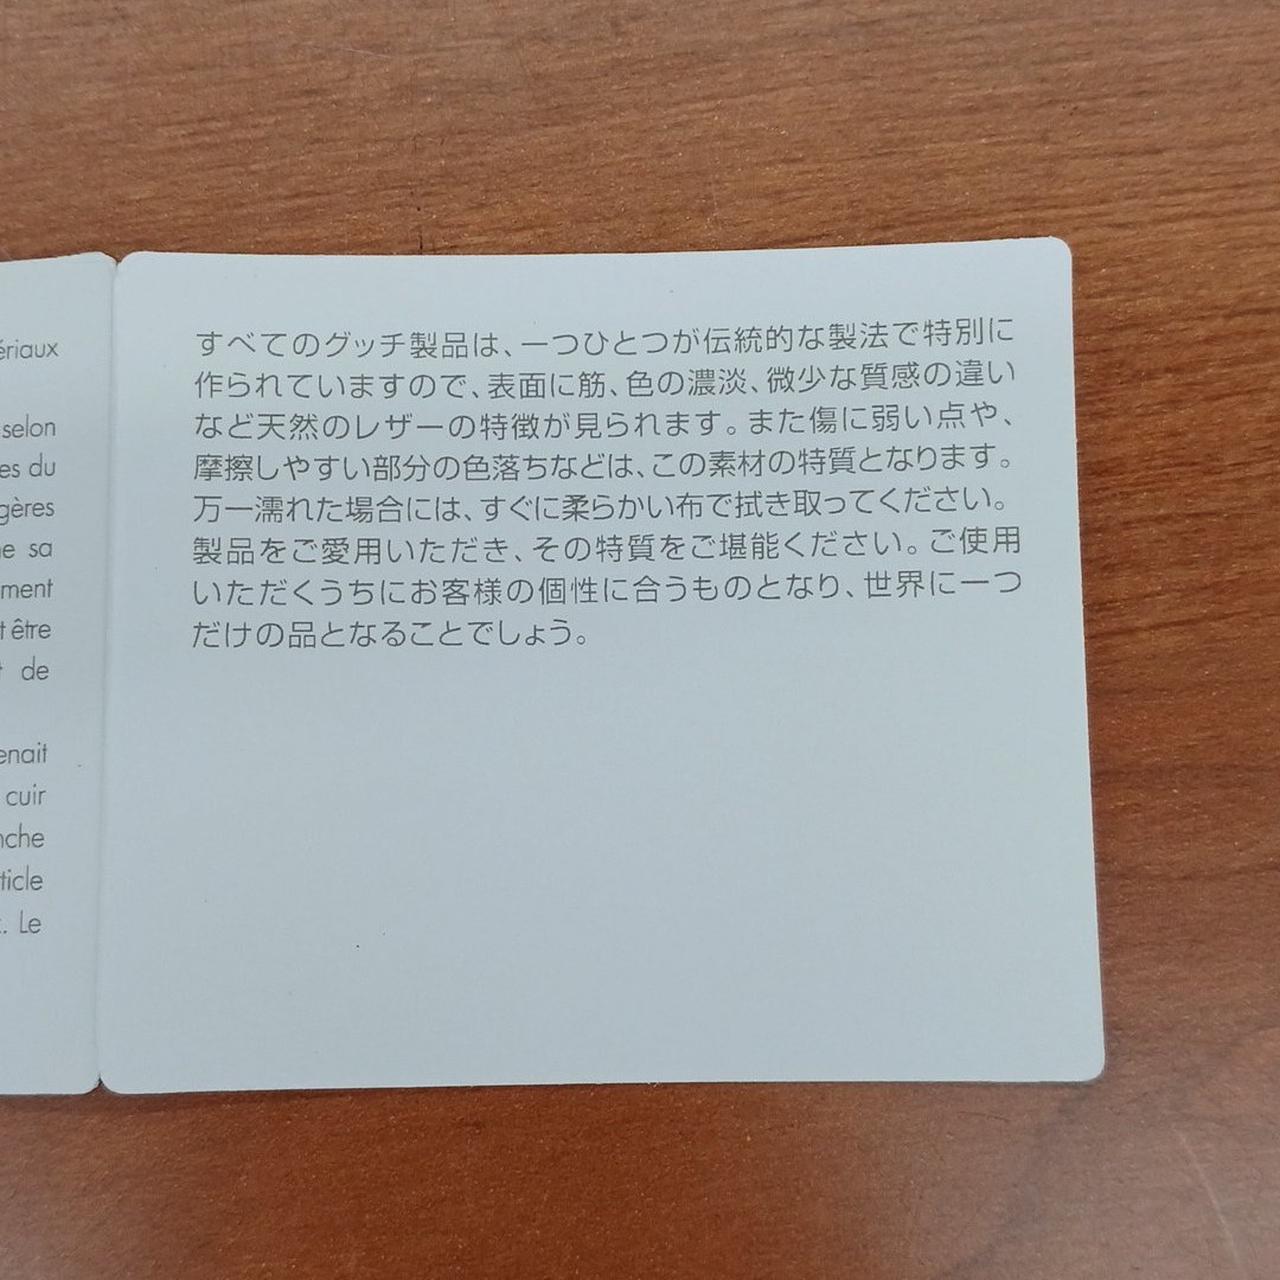 ériaux
selon
es du
gères
e sa
ment
t être
de
enait
cuir
nche
ticle
. Le
すべてのグッチ製品は、一つひとつが伝統的な製法で特別に
作られていますので、表面に筋、色の濃淡、微少な質感の違い
など天然のレザーの特徴が見られます。また傷に弱い点や、
摩擦しやすい部分の色落ちなどは、この素材の特質となります。
万一濡れた場合には、すぐに柔らかい布で拭き取ってください。
製品をご愛用いただき、その特質をご堪能ください。ご使用
いただくうちにお客様の個性に合うものとなり、世界に一つ
だけの品となることでしょう。